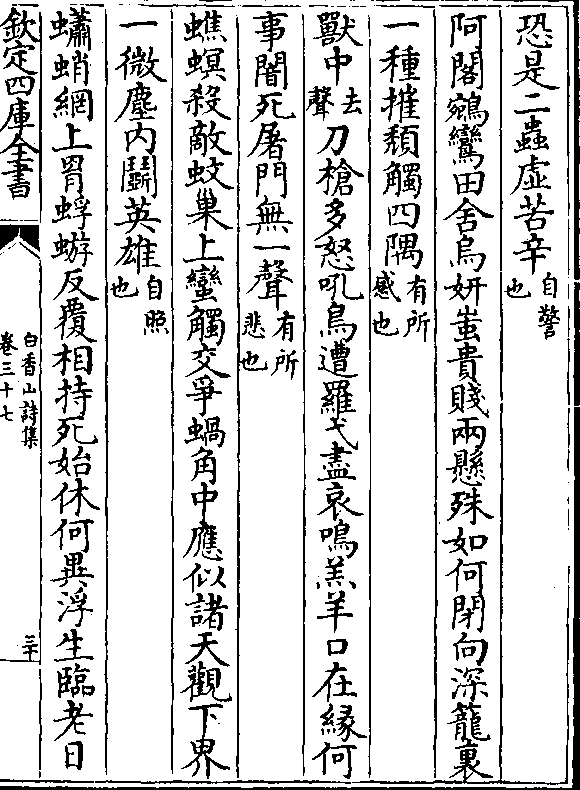 恐是二蟲虛苦辛自警也
阿閣鵷鸞田舍烏妍蚩貴賤兩懸殊如何閉向深籠裏
一種摧頽觸四隅有所感也
獸中去聲刀槍多怒吼鳥遭羅弋盡哀鳴羔羊口在緣何
事闇死屠門無一聲有所悲也
蟭螟殺敵蚊巢上蠻觸交爭蝸角中應似諸天觀下界
一微塵內鬭英雄自照也
蠨蛸網上罥蜉蝣反覆相持死始休何異浮生臨老日
欽定四庫全書
白香山詩集
卷三十七
三十